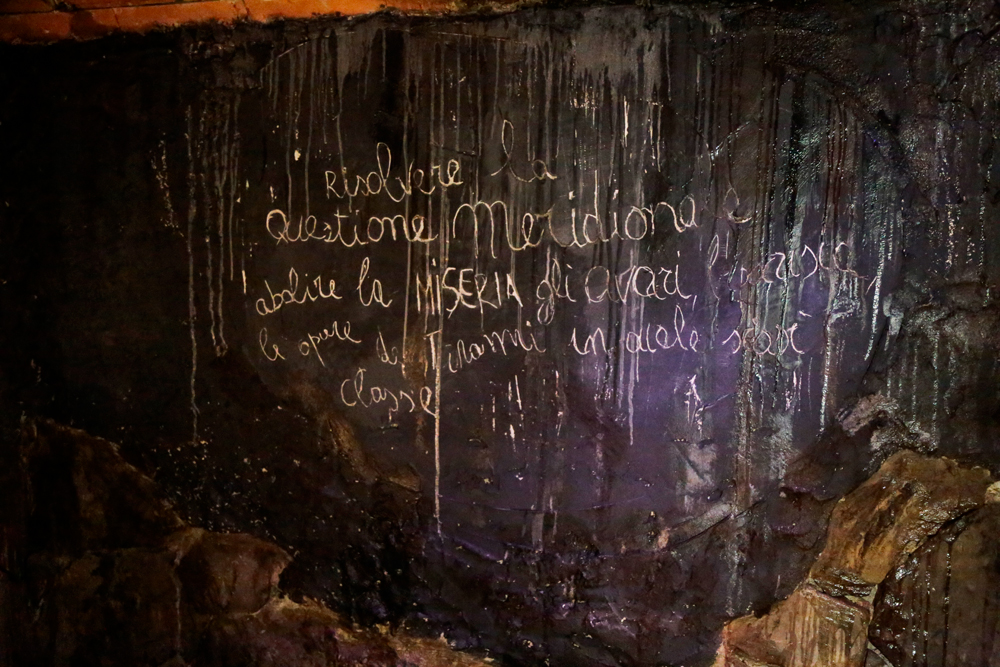 Risolvere la
Questione Meridionale
abolire la MiSERIA gli avari,
le opure di Tiranni in quale
classe